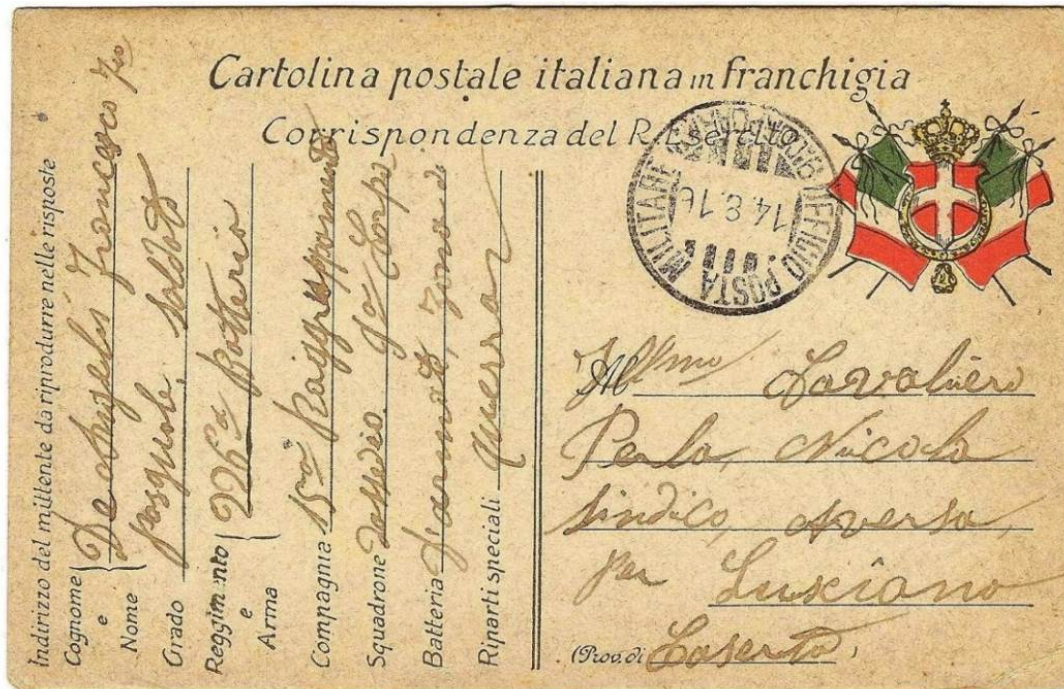 Cartolina postale italiana in franchigia
Corrispondenza del R. Esercito
UFFICIO POSTA MILITARE
14.8.16
Indirizzo del mittente da riprodurre nelle risposte
Cognome e Nome De Angelis Francesco
Pasquale
Grado soldato
Reggimento e Arma 226ª Batteria
Compagnia 15º Raggruppamento
Squadrone
Batteria d'armata, Zona di
Riparti speciali guerra
All'Ill.mo Cavaliero
Perla, Nicola
sindico, Aversa,
per Lusciano
(Prov. di Caserta)